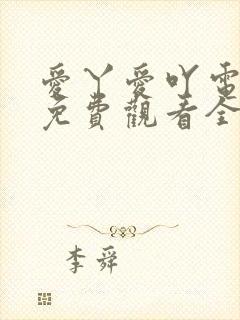 愛丫愛吖電
免費觀看全
李舜